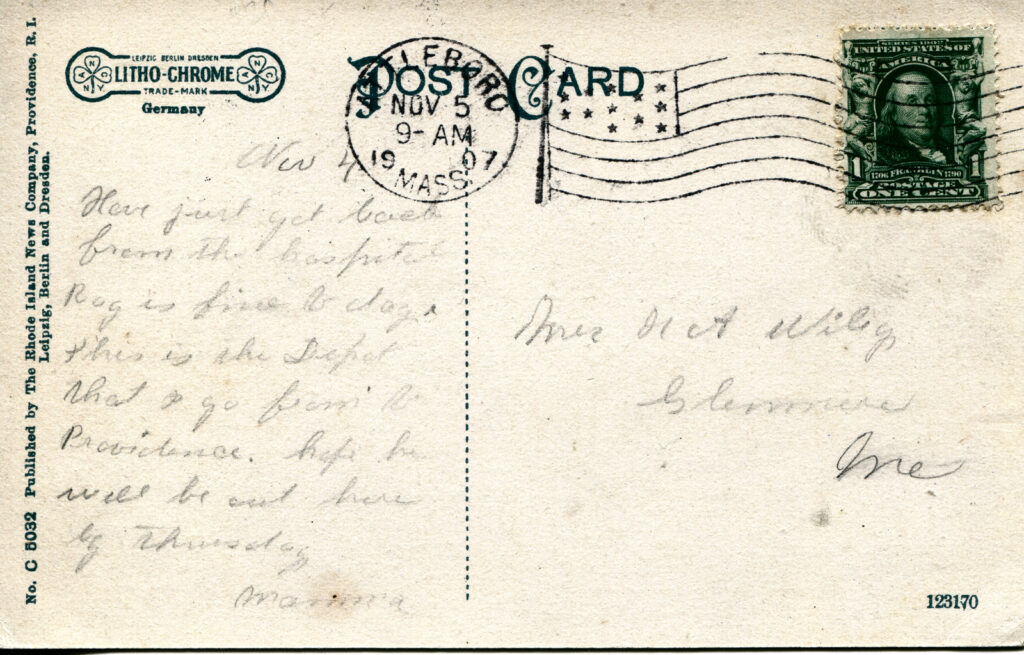 No. C 5032 Published by The Rhode Island News Company, Providence, R. I.
Leipzig, Berlin and Dresden.
LEIPZIG BERLIN DRESDEN
LITHO-CHROME
TRADE-MARK
Germany
POST CARD
NOV 5
9-AM
1907
MASS.
SERIES 1902
UNITED STATES OF
AMERICA
1 1
1706 FRANKLIN 1790
POSTAGE
ONE CENT
Nov 4
Have just got back
from the hospital
Ray is fine to day.
this is the Depot
that I go from to
Providence. hope he
will be out here
by Thursday
Mamma
Mrs A Wiley
Glenmere
Me
123170